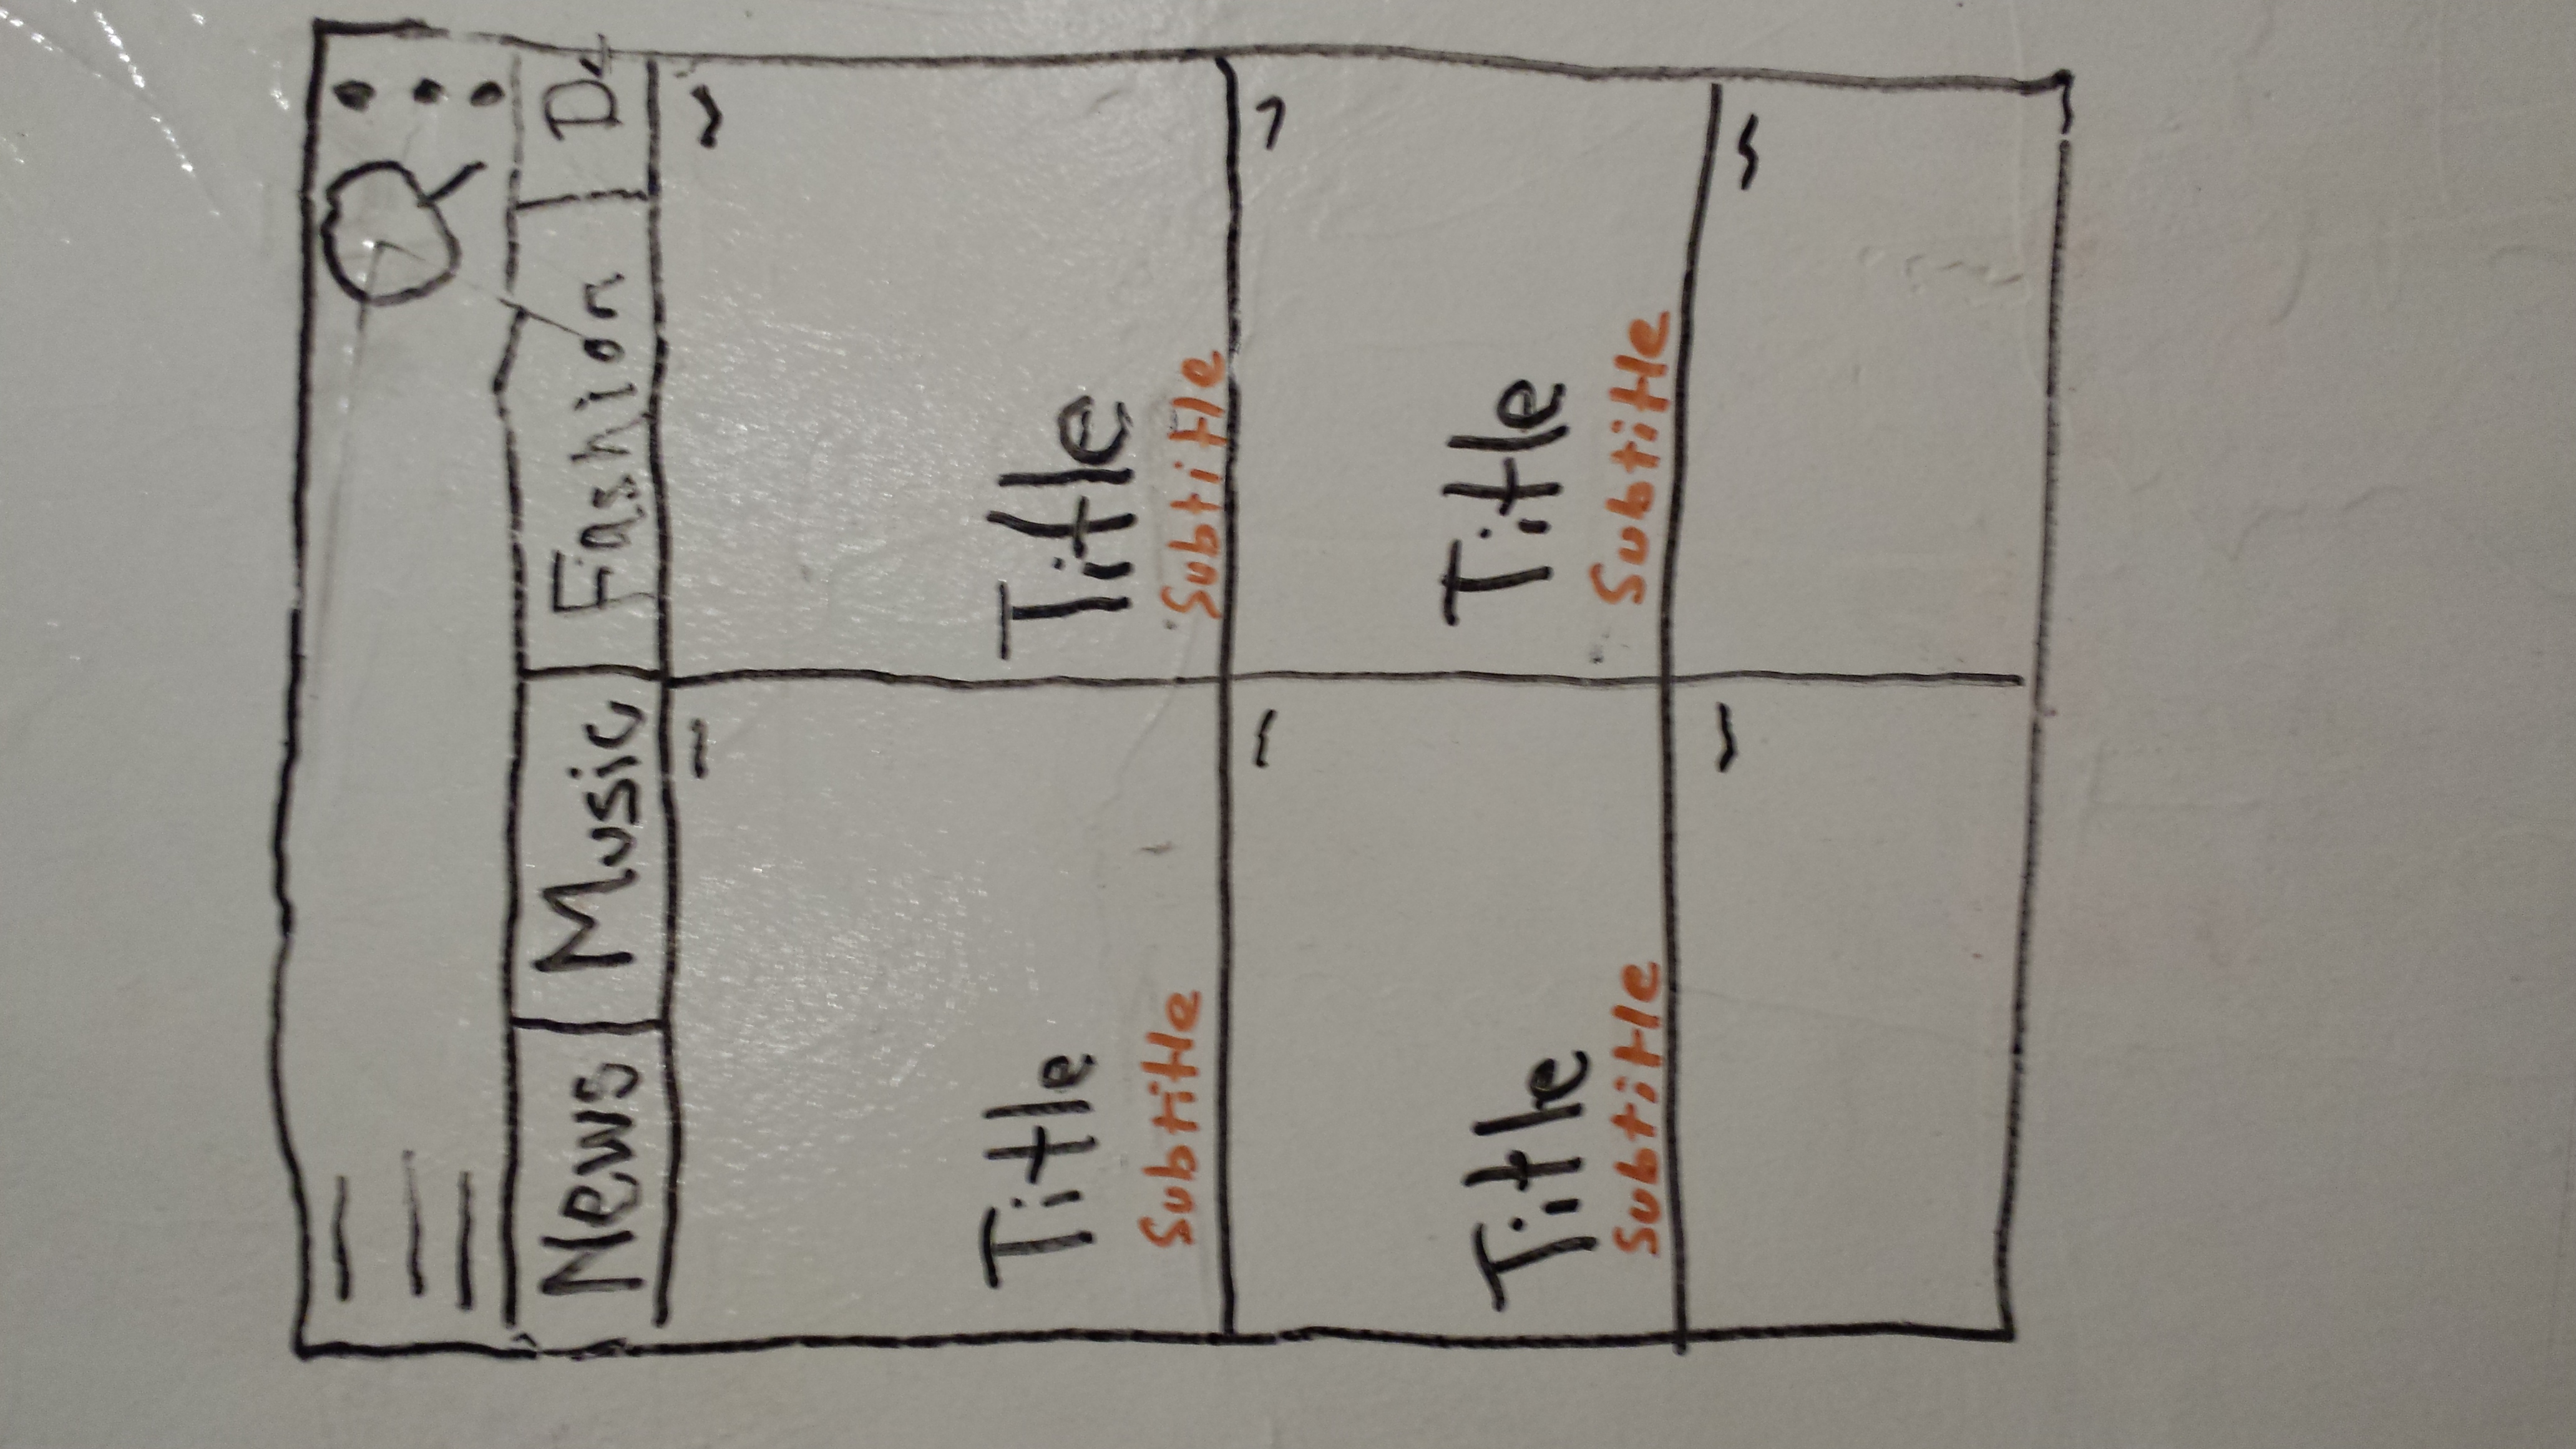 News Music Fashion
Title Title
Subtitle Subtitle
Title Title
Subtitle Subtitle